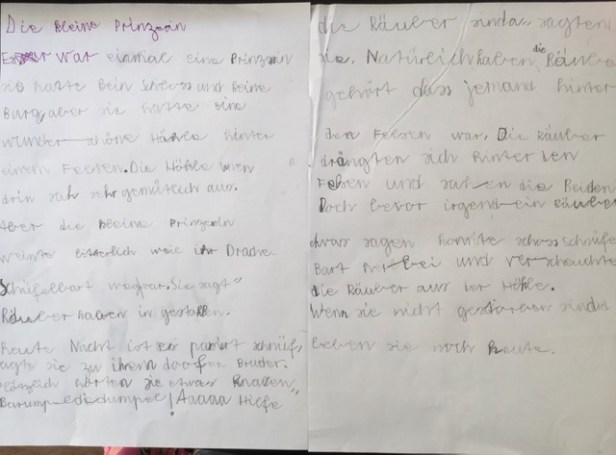 Die kleine Prinzesin
Es war einmal eine Prinzesin
sie hatte kein Schloss und keine
Burg aber sie hatte eine
wunder-schöne Höhle hinter
einem Felsen. Die Höhle
drin sah sehr gemütlich aus.
Aber die kleine Prinzesin
weinte bitterlich weil ihr Drache
Schüfelbart weg war. Sie sagt"
Räuber haben in gestolen.
heute Nacht ist er
sagte sie zu ihrem doofen Bruder.
hörten sie etwas Knacen"
Barumpedibumpel! Aaaaa Hilfe
die Räuber sind da" sagten
sie. Natürlich haben die Räuber
gehört dass jemand hinter
den Felsen war. Die Räuber
drängten sich hinter den
Felsen und sahen die Beiden
Doch bevor irgend-ein Räuber
etwas sagen konnte schoss Schüfel
Bart vorbei und verscheuchte
die Räuber aus der Höhle.
Wenn sie nicht gestorben sind
leben sie noch heute.